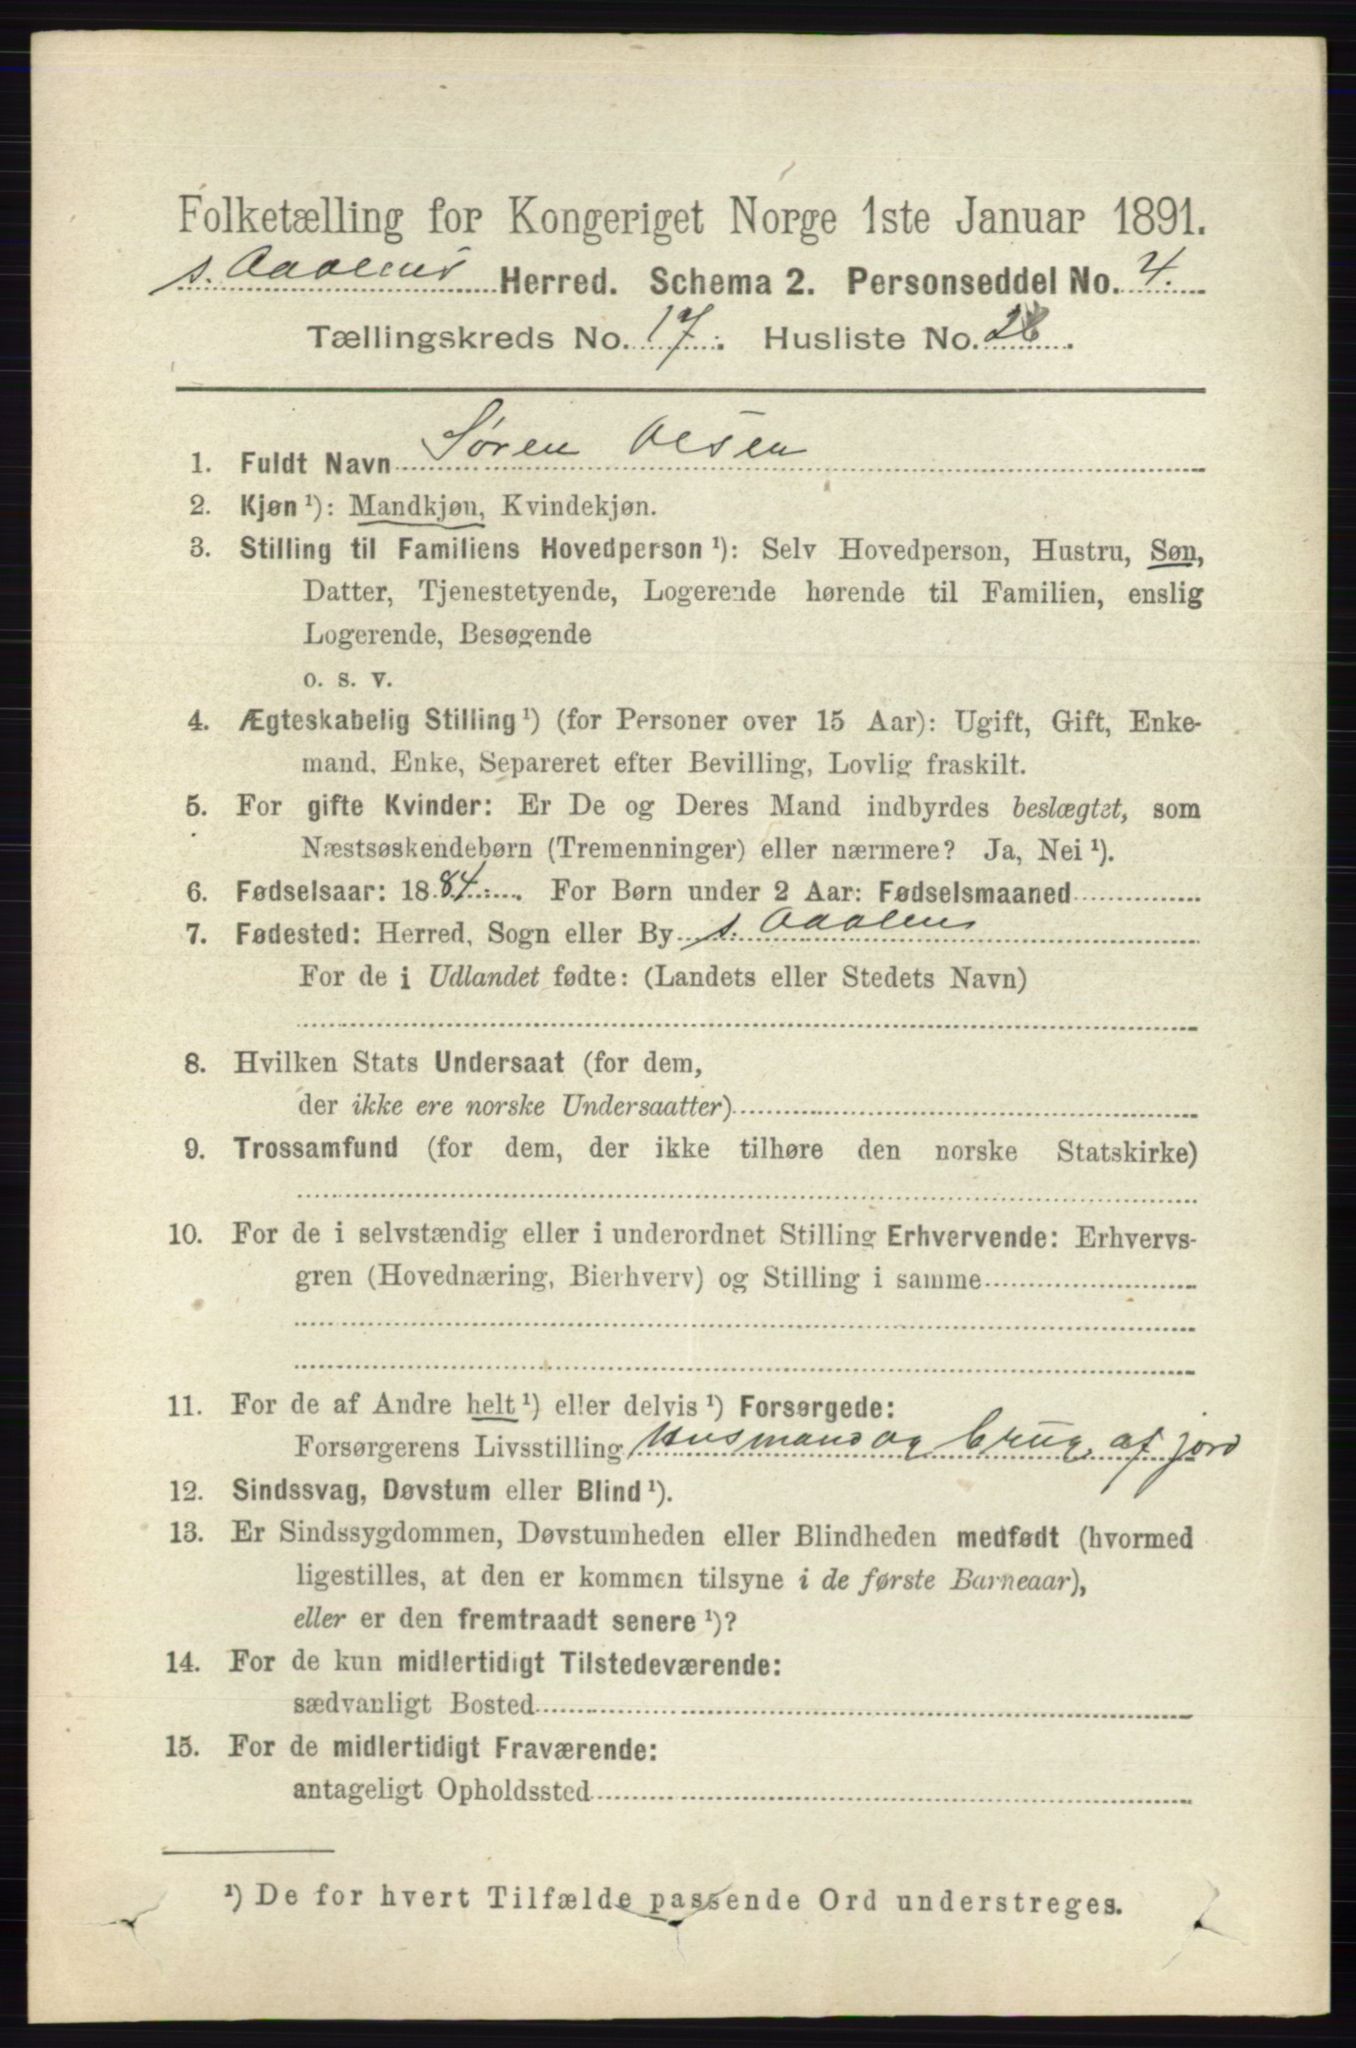 Folketælling for Kongeriget Norge 1ste Januar 1891.
s. Aadlens Herred. Schema 2. Personseddel No. 4.
Tællingskreds No. 17. Husliste No. 28
1. Fuldt Navn Søren Olsen
2. Kjøn ¹): Mandkjøn, Kvindekjøn.
3. Stilling til Familiens Hovedperson ¹): Selv Hovedperson, Hustru, Søn,
Datter, Tjenestetyende, Logerende hørende til Familien, enslig
Logerende, Besøgende
o. s. v.
4. Ægteskabelig Stilling ¹) (for Personer over 15 Aar): Ugift, Gift, Enke-
mand, Enke, Separeret efter Bevilling, Lovlig fraskilt.
5. For gifte Kvinder: Er De og Deres Mand indbyrdes beslægtet, som
Næstsøskendebørn (Tremenninger) eller nærmere? Ja, Nei ¹).
6. Fødselsaar: 1884. For Børn under 2 Aar: Fødselsmaaned
7. Fødested: Herred, Sogn eller By s. Aadlens
For de i Udlandet fødte: (Landets eller Stedets Navn)
8. Hvilken Stats Undersaat (for dem,
der ikke ere norske Undersaatter)
9. Trossamfund (for dem, der ikke tilhøre den norske Statskirke)
10. For de i selvstændig eller i underordnet Stilling Erhvervende: Erhvervs-
gren (Hovednæring, Bierhverv) og Stilling i samme
11. For de af Andre helt ¹) eller delvis ¹) Forsørgede:
Forsørgerens Livsstilling Husmand og brug af jord
12. Sindssvag, Døvstum eller Blind ¹).
13. Er Sindssygdommen, Døvstumheden eller Blindheden medfødt (hvormed
ligestilles, at den er kommen tilsyne i de første Barneaar),
eller er den fremtraadt senere ¹)?
14. For de kun midlertidigt Tilstedeværende:
sædvanligt Bosted
15. For de midlertidigt Fraværende:
antageligt Opholdssted
¹) De for hvert Tilfælde passende Ord understreges.